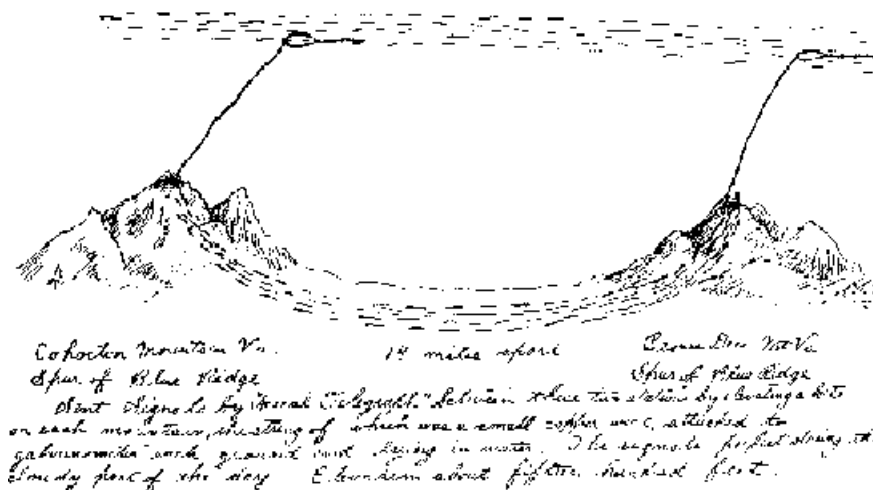 Cohocton Mountain Va.
Spur of Blue Ridge
14 miles apart
Beorse Deer Mt Va
Spur of Blue Ridge
Sent signals by "Aerial Telegraph" between these two stations by elevating a kite
on each mountain, the string of which was a small copper wire, attached to
galvanometer and ground laying in water. The signals during the
cloudy part of the day Elevation about fifteen hundred feet.